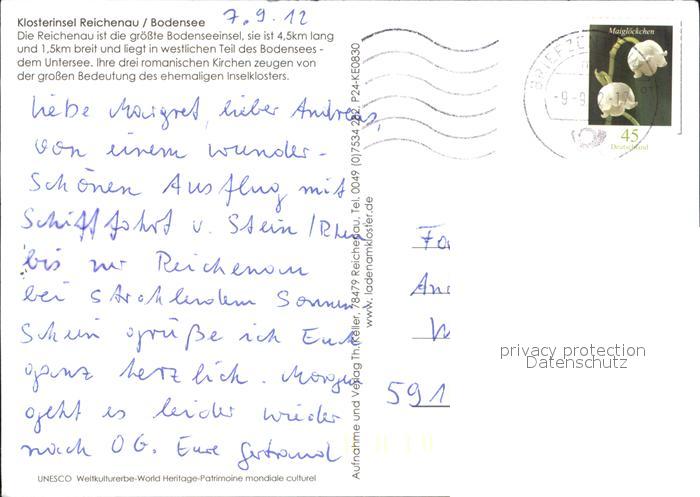 Klosterinsel Reichenau / Bodensee
7.9.12
Die Reichenau ist die größte Bodenseeinsel, sie ist 4,5km lang
und 1,5km breit und liegt in westlichen Teil des Bodensees -
dem Untersee. Ihre drei romanischen Kirchen zeugen von
der großen Bedeutung des ehemaligen Inselklosters.
Liebe Margret, lieber Andreas,
von einem wunder-
schönen Ausflug mit
Schifffahrt v. Stein/Rhein
bis zur Reichenau
bei strahlendem Sonnen
schein grüße ich Euch
ganz herzlich. Morgen
geht es leider wieder
nach OG. Eure Gertraud
UNESCO Weltkulturerbe-World Heritage-Patrimoine mondiale culturel
Aufnahme und Verlag Th. Keller, 78479 Reichenau, Tel. 0049 (0)7534 P24-KE0830
www.ladenamkloster.de
Maiglöckchen
45
Deutschland
BRIEFZE
-9-9
Fa
An
591
privacy protection
Datenschutz